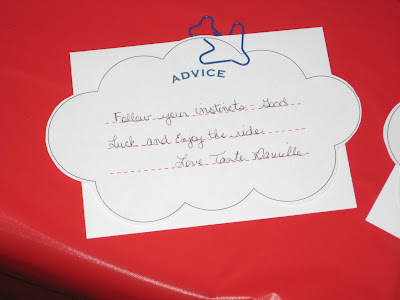 ADVICE
Follow your instincts. Good
Luck and Enjoy the ride
Love Tante Danielle